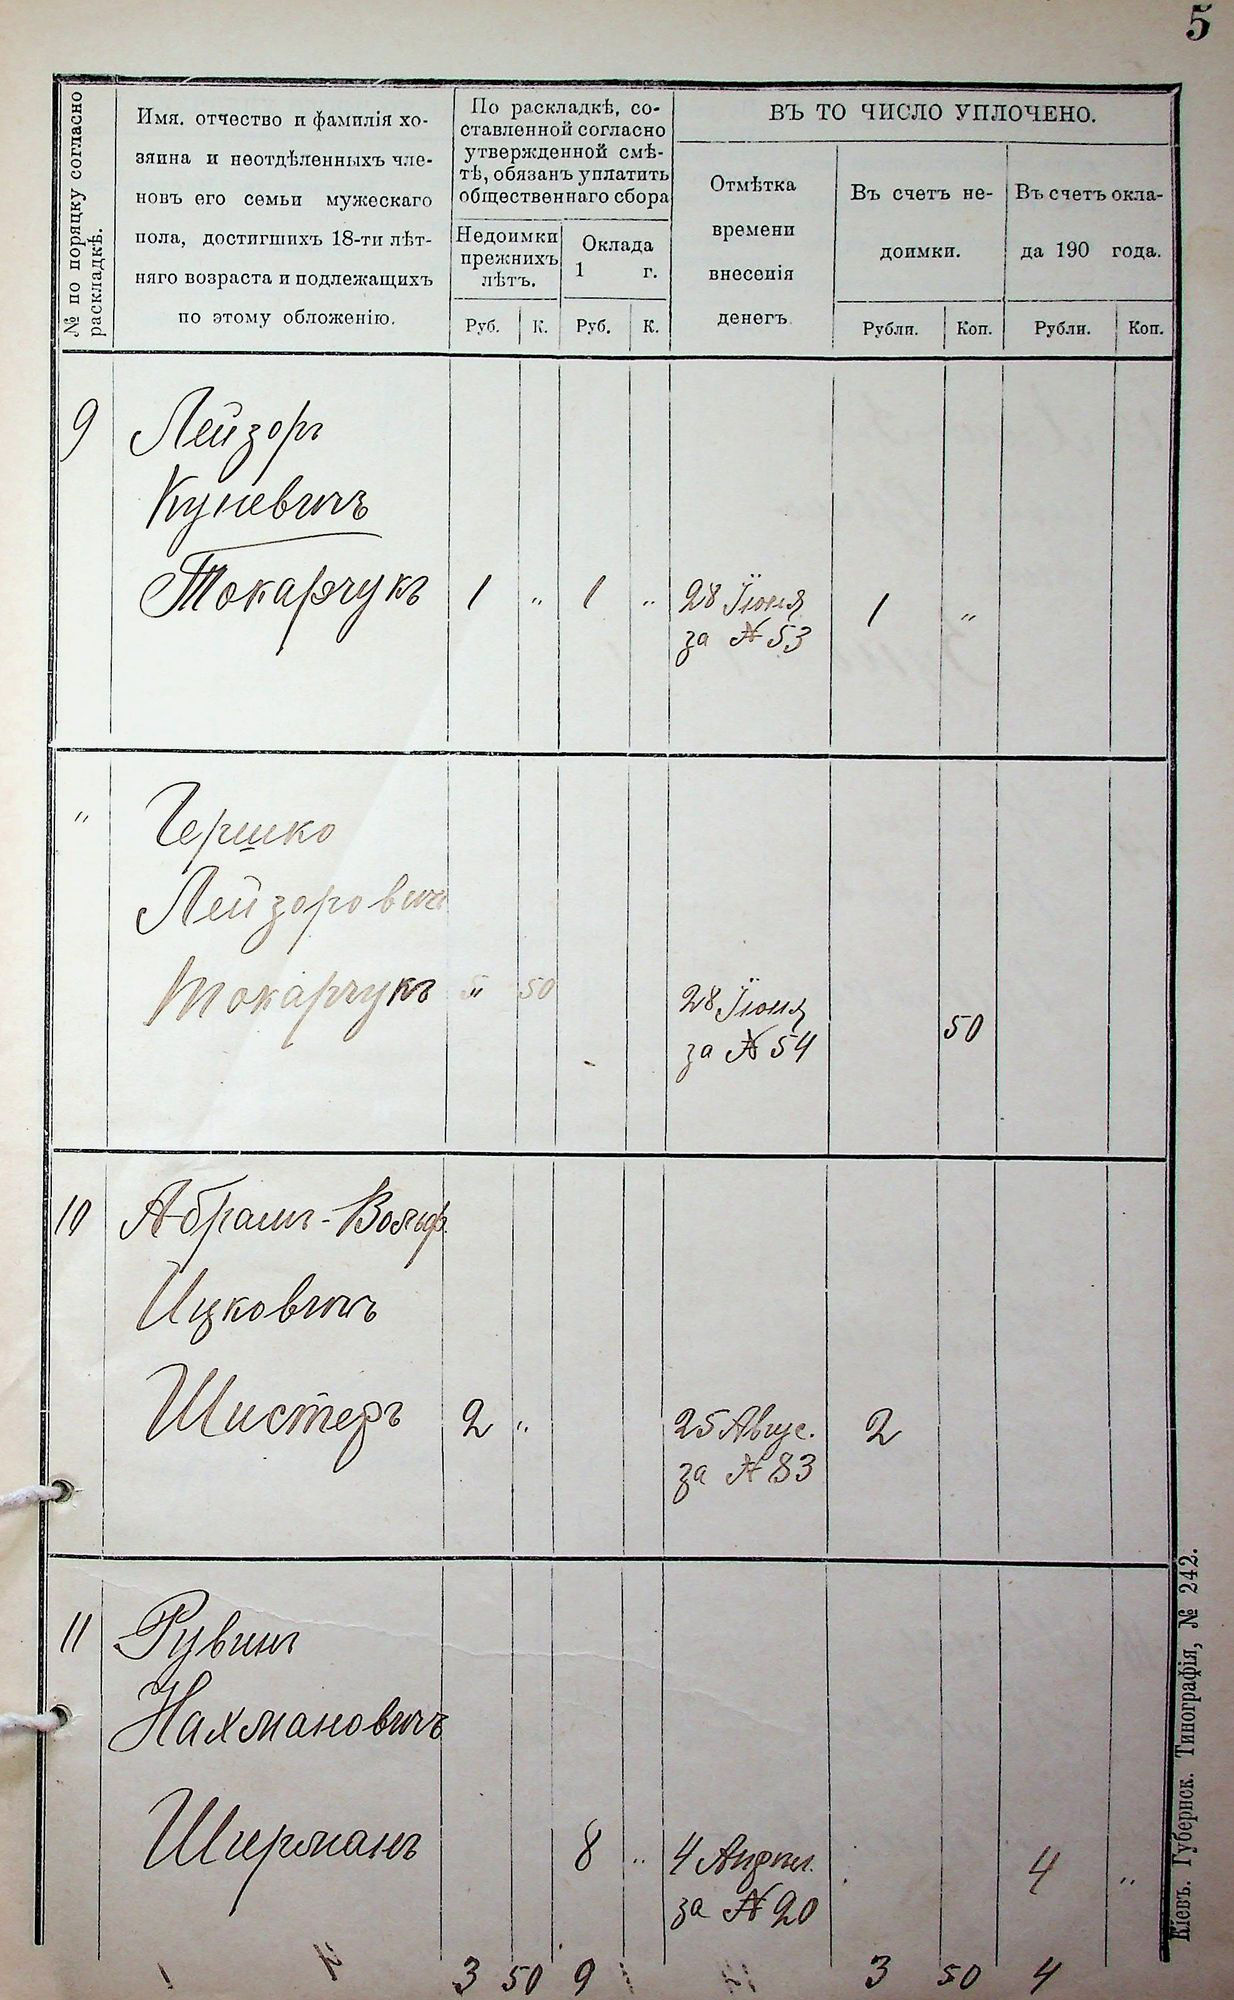 5
№ по порядку согласно
раскладкѣ.
Имя. отчество и фамилія хо-
зяина и неотдѣленныхъ чле-
новъ его семьи мужескаго
пола, достигшихъ 18-ти лѣт-
няго возраста и подлежащихъ
по этому обложенію.
По раскладкѣ, со-
ставленной согласно
утвержденной смѣ-
тѣ, обязанъ уплатить
общественнаго сбора
Недоимки
прежнихъ
лѣтъ.
Оклада
1 г.
Руб. К. Руб. К.
ВЪ ТО ЧИСЛО УПЛОЧЕНО.
Отмѣтка
времени
внесенія
денегъ
Въ счетъ не-
доимки.
Въ счетъ окла-
да 190 года.
Рубли. Коп. Рубли. Коп.
9 Лейзоръ
Куневичъ
Токарчукъ 1 " 1 " 28 Іюня 1 "
за № 53
" Гершко
Лейзорович
Токарчукъ " 50 28 Іюня
за № 54 50
10 Абрамъ-Вольф
Ицковичъ
Шистеръ 2 " 25 Авгус. 2
за № 83
11 Рувинъ
Нахмановичъ
Шерманъ 8 " 4 Апрѣл. 4 "
за № 20
3 50 9 3 50 4
Кіевъ. Губернск. Типографія, № 242.